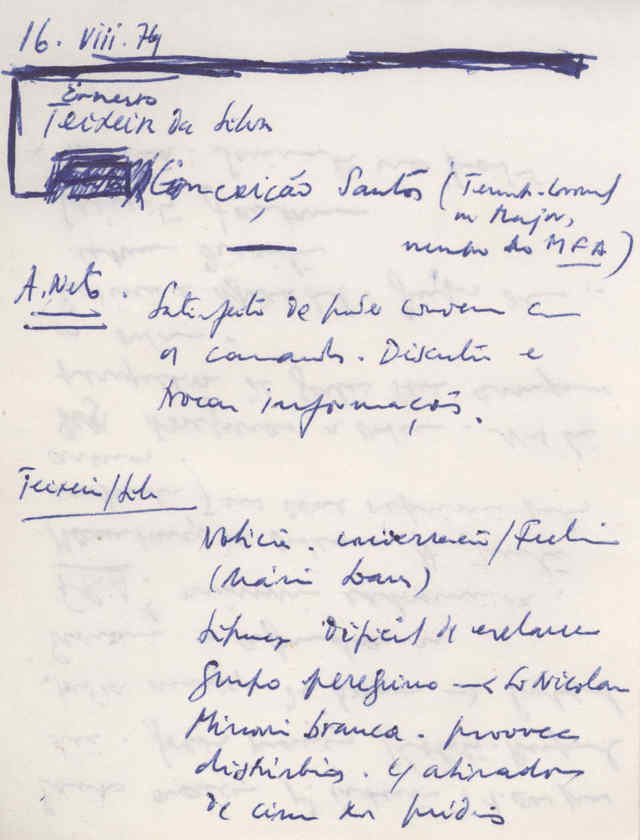 16. VIII. 74
Ernesto
Teixeira da Silva
Conceição Santos (Tenente-Coronel
ou Major,
membro do MFA)
A. Neto. Satisfeito de poder conversar com
os comands. Discutir e
trocar informações.
Teixeira/Silva
Notícia. conversação/Frelimo
(Mário Soares)
Situação difícil de esclarecer
Grupo peregrino → S. Nicolau
Minoria branca. provocar
distúrbios. atiradores
de cima dos prédios